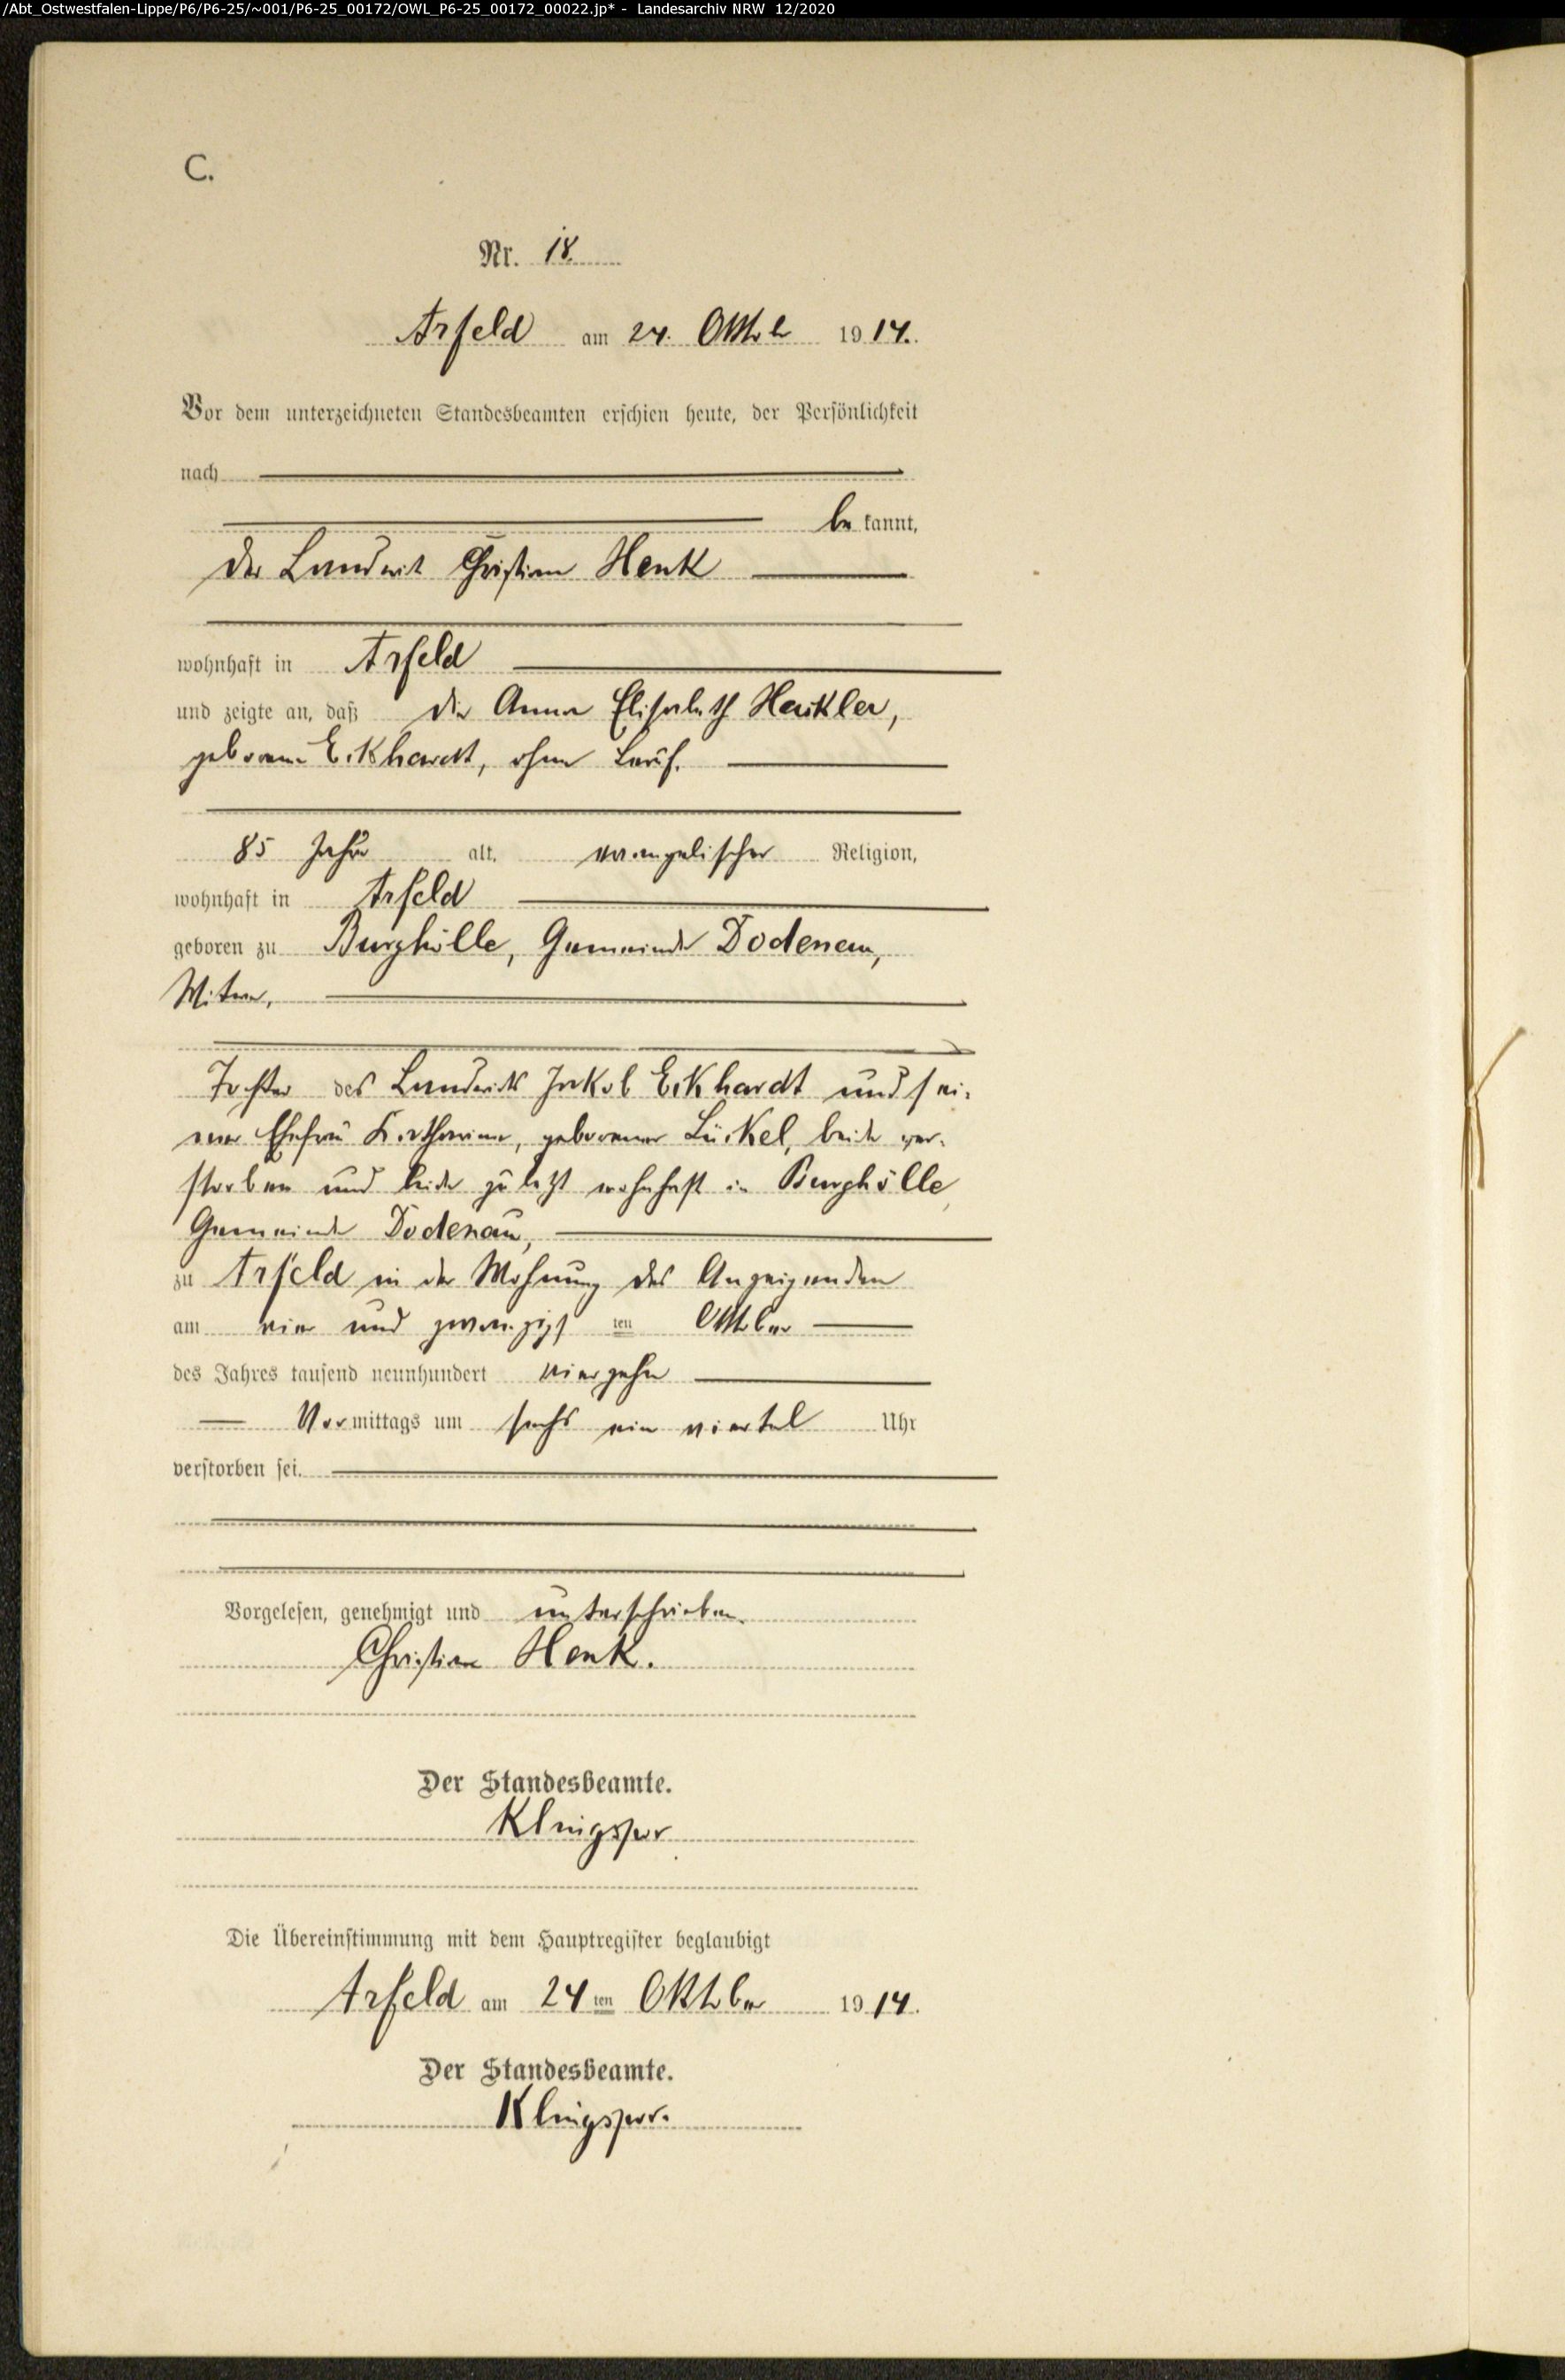 /Abt_Ostwestfalen-Lippe/P6/P6-25/~001/P6-25_00172/OWL_P6-25_00172_00022.jp* - Landesarchiv NRW 12/2020
C.
Nr. 18.
Arfeld am 24. Oktob 1914.
Vor dem unterzeichneten Standesbeamten erschien heute, der Persönlichkeit
nach
be kannt,
der Landwirt Christian Henk
wohnhaft in Arfeld
und zeigte an, daß die Anna Elisabeth
geborene Eckhardt, ohne Beruf.
85 Jahre alt, evangelischer Religion,
wohnhaft in Arfeld
geboren zu Burghölle, Gemeinde Dodenau,
Witwe,
Tochter des Landwirts Jakob Eckhardt und sei-
ner Ehefrau Katharine, geborener Lückel, beide ver-
storben und beide zuletzt wohnhaft in Burghölle,
Gemeinde Dodenau,
zu Arfeld in der Wohnung des Anzeigenden
am vier und zwanzigs ten Oktober
des Jahres tausend neunhundert vierzehn
Vormittags um sechs ein viertel Uhr
verstorben sei.
Vorgelesen, genehmigt und unterschrieben.
Christian Henk.
Der Standesbeamte.
Klingspor
Die Übereinstimmung mit dem Hauptregister beglaubigt
Arfeld am 24 ten Oktober 1914.
Der Standesbeamte.
Klingspor.